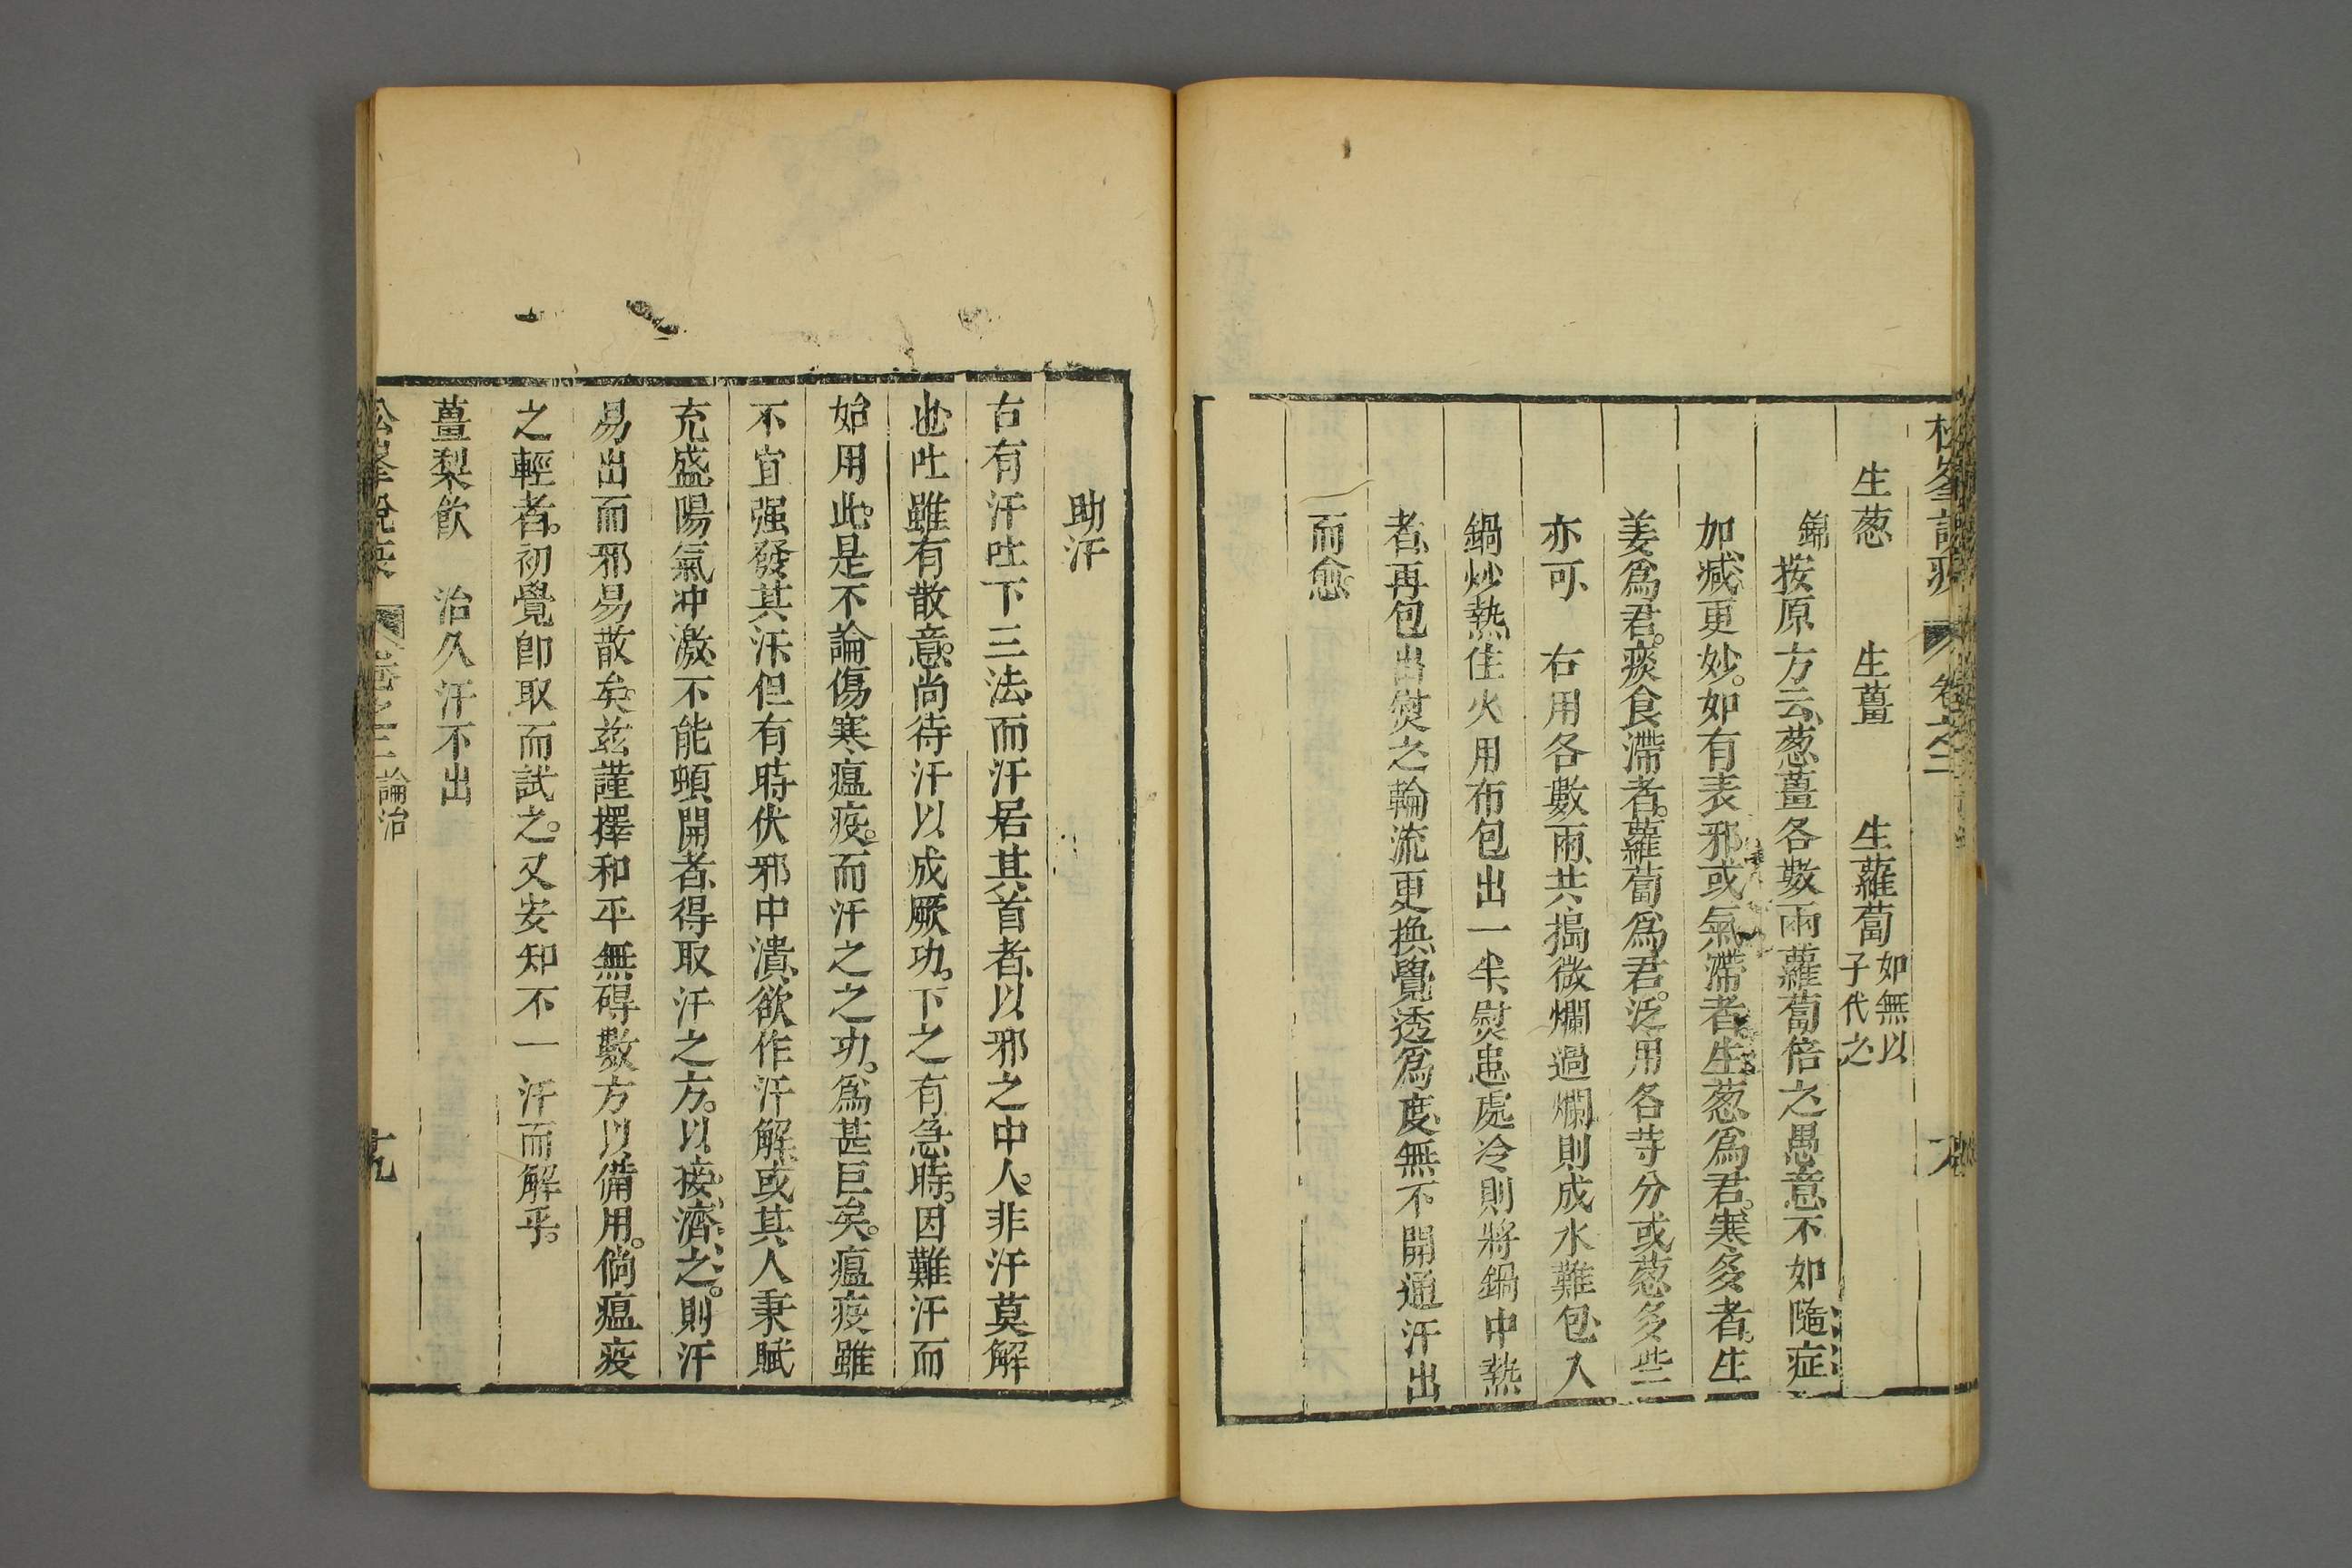 松峯說疫 卷之二
生葱 生薑 生蘿蔔如無以子代之
錦按原方云、葱薑各數兩、蘿蔔倍之、愚意不如隨症
加减更妙。如有表邪或氣滯者、生葱爲君。寒多者、生
姜爲君。痰食滯者。蘿蔔爲君。泛用各等分或葱多些
亦可 右用各數兩、共搗微爛過爛則成水難包入
鍋炒熱、住火用布包出一半、熨患處冷則將鍋中熱
者、再包出熨之輪流更換、覺透爲度、無不開通汗出
而愈。
助汗
古有汗吐下三法、而汗居其首者、以邪之中人。非汗莫解
也吐雖有散意。尚待汗以成厥功。下之有急時。因難汗而
始用此。是不論傷寒瘟疫。而汗之之功。爲甚巨矣。瘟疫雖
不宜强發其汗、但有時伏邪中潰、欲作汗解、或其人秉賦
充盛、陽氣冲激、不能頓開者、得取汗之方。以接濟之。則汗
易出而邪易散矣。兹謹擇和平無碍數方以備用。倘瘟疫
之輕者。初覺卽取而試之。又安知不一汗而解乎。
薑梨飲 治久汗不出
松峯說疫 卷之二 論治